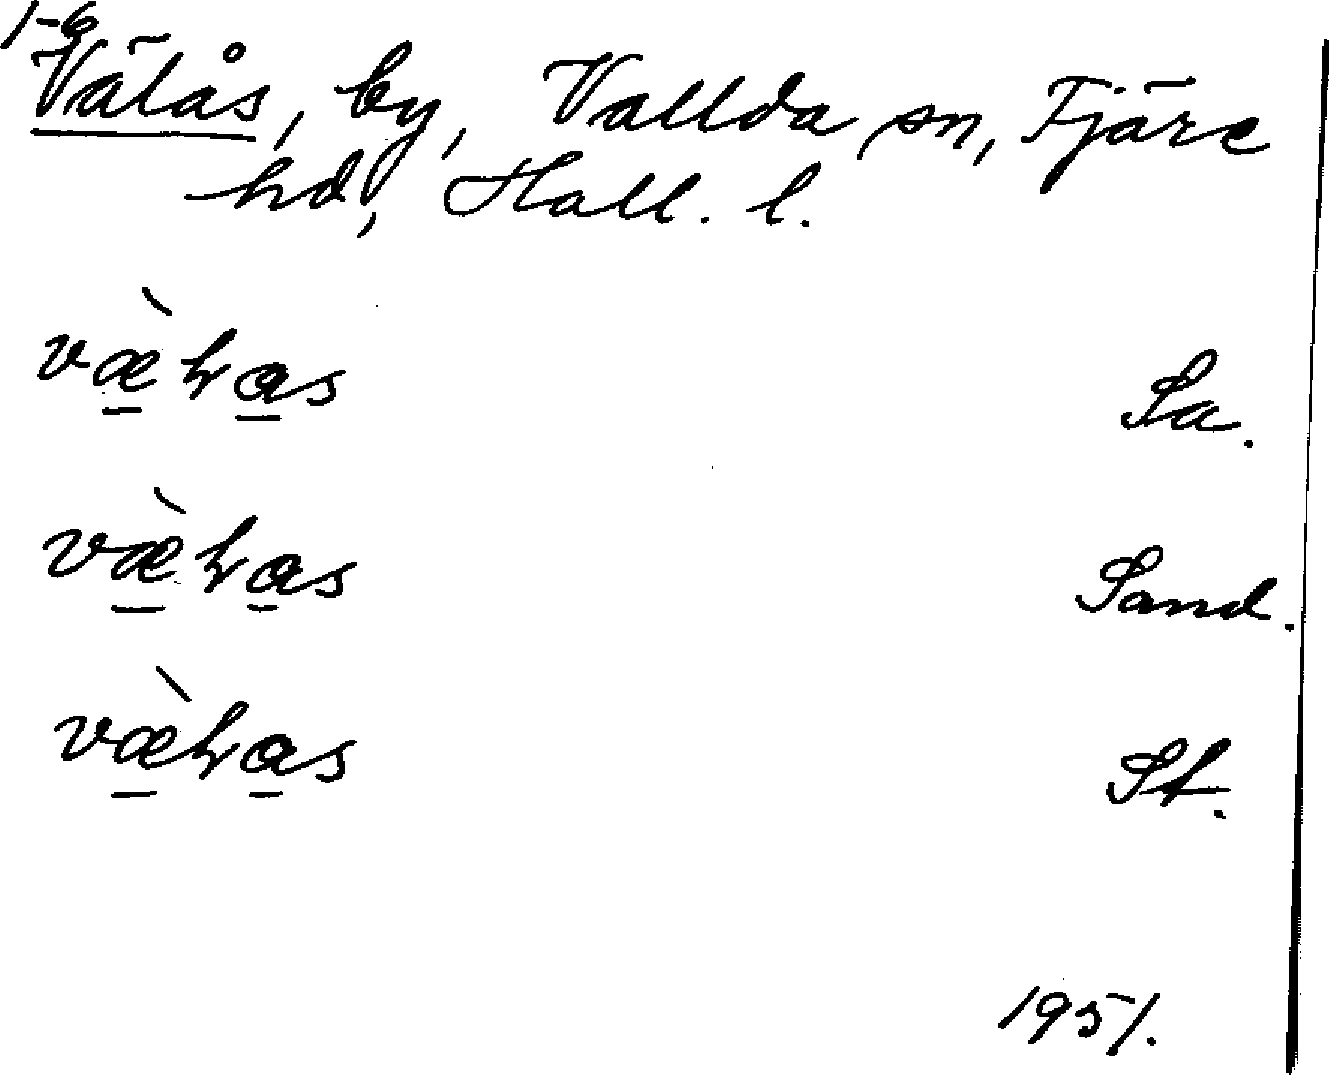 1-6
Välås, by, Vallda sn, Fjäre
hd, Hall. l.
væ̠̀ɫa̠s Sa.
væ̠̀ɫa̠s Sand.
væ̠̀ɫa̠s St.
1951.